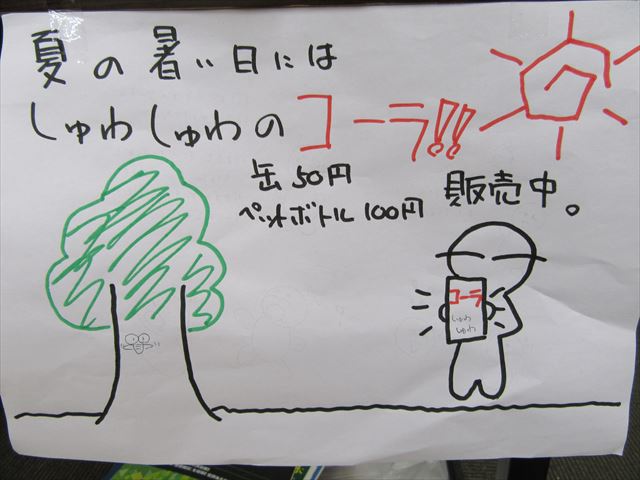 夏の暑い日には
しゅわしゅわのコーラ!!
缶50円
ペットボトル100円
販売中。
コーラ
しゅわ
しゅわ